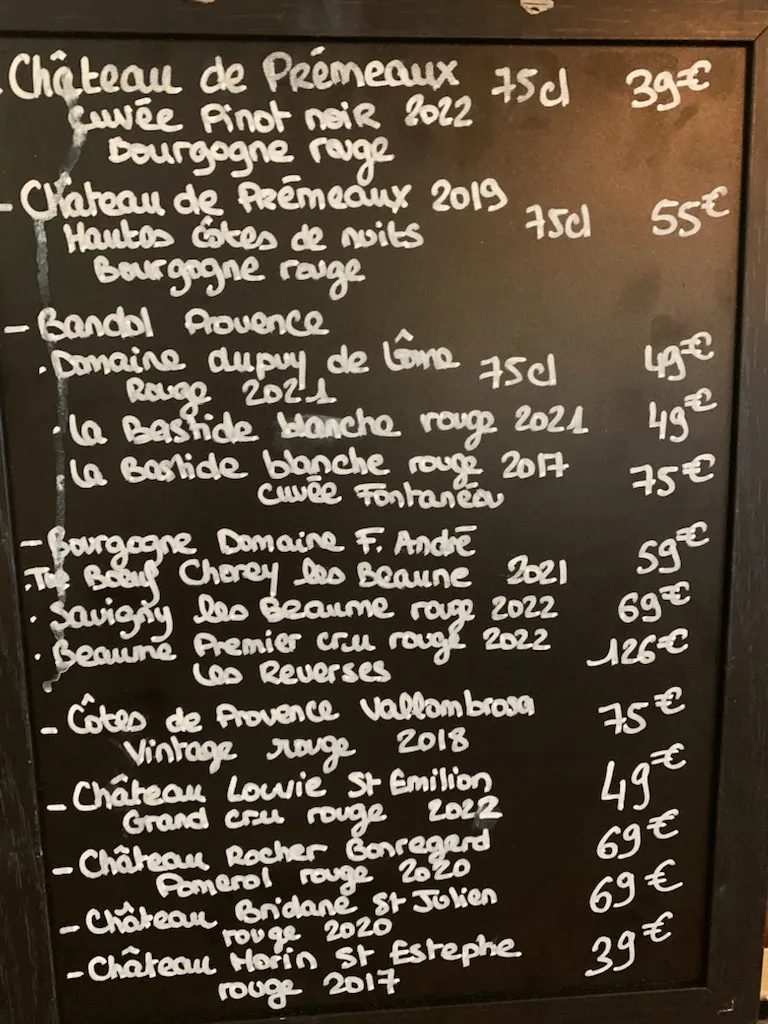 - Château de Prémeaux 75cl 39€
Cuvée Pinot noir 2022
Bourgogne rouge
- Château de Prémeaux 2019
Hautes Côtes de nuits 75cl 55€
Bourgogne rouge
- Bandol Provence
. Domaine dupuy de Lôme 75cl 49€
Rouge 2021
. La Bastide blanche rouge 2021 49€
. La Bastide blanche rouge 2017 75€
Cuvée Fontanéou
- Bourgogne Domaine F. André 59€
. Tue Boeuf Chorey les Beaune 2021
. Savigny les Beaume rouge 2022 69€
. Beaume Premier cru rouge 2022 126€
Les Reverses
- Côtes de Provence Vallombrosa 75€
Vintage rouge 2018
- Château Louvie St Emilion 49€
Grand cru rouge 2022
- Château Rocher Bonregard 69€
Pomerol rouge 2020
- Château Bridane St Julien 69€
rouge 2020
- Château Morin St Estephe 39€
rouge 2017